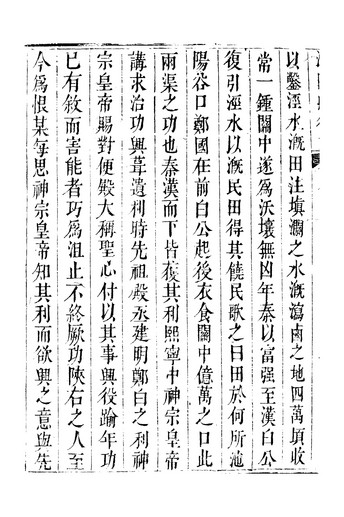 以鑿涇水溉田注填淤之水溉瀉鹵之地四萬頃收
常一鍾關中遂為沃壤無凶年秦以富强至漢白公
復引涇水以溉民田得其饒民歌之曰田於何所池
陽谷口鄭國在前白公起後衣食關中億萬之口此
兩渠之功也秦漢而下皆獲其利熙寧中神宗皇帝
講求治功興葺遺利時先祖殿丞建明鄭白之利神
宗皇帝賜對便殿大稱聖心付以其事興役踰年功
已有敘而害能者巧為沮止不終厥功陝右之人至
今為恨某每思神宗皇帝知其利而欲興之意與先